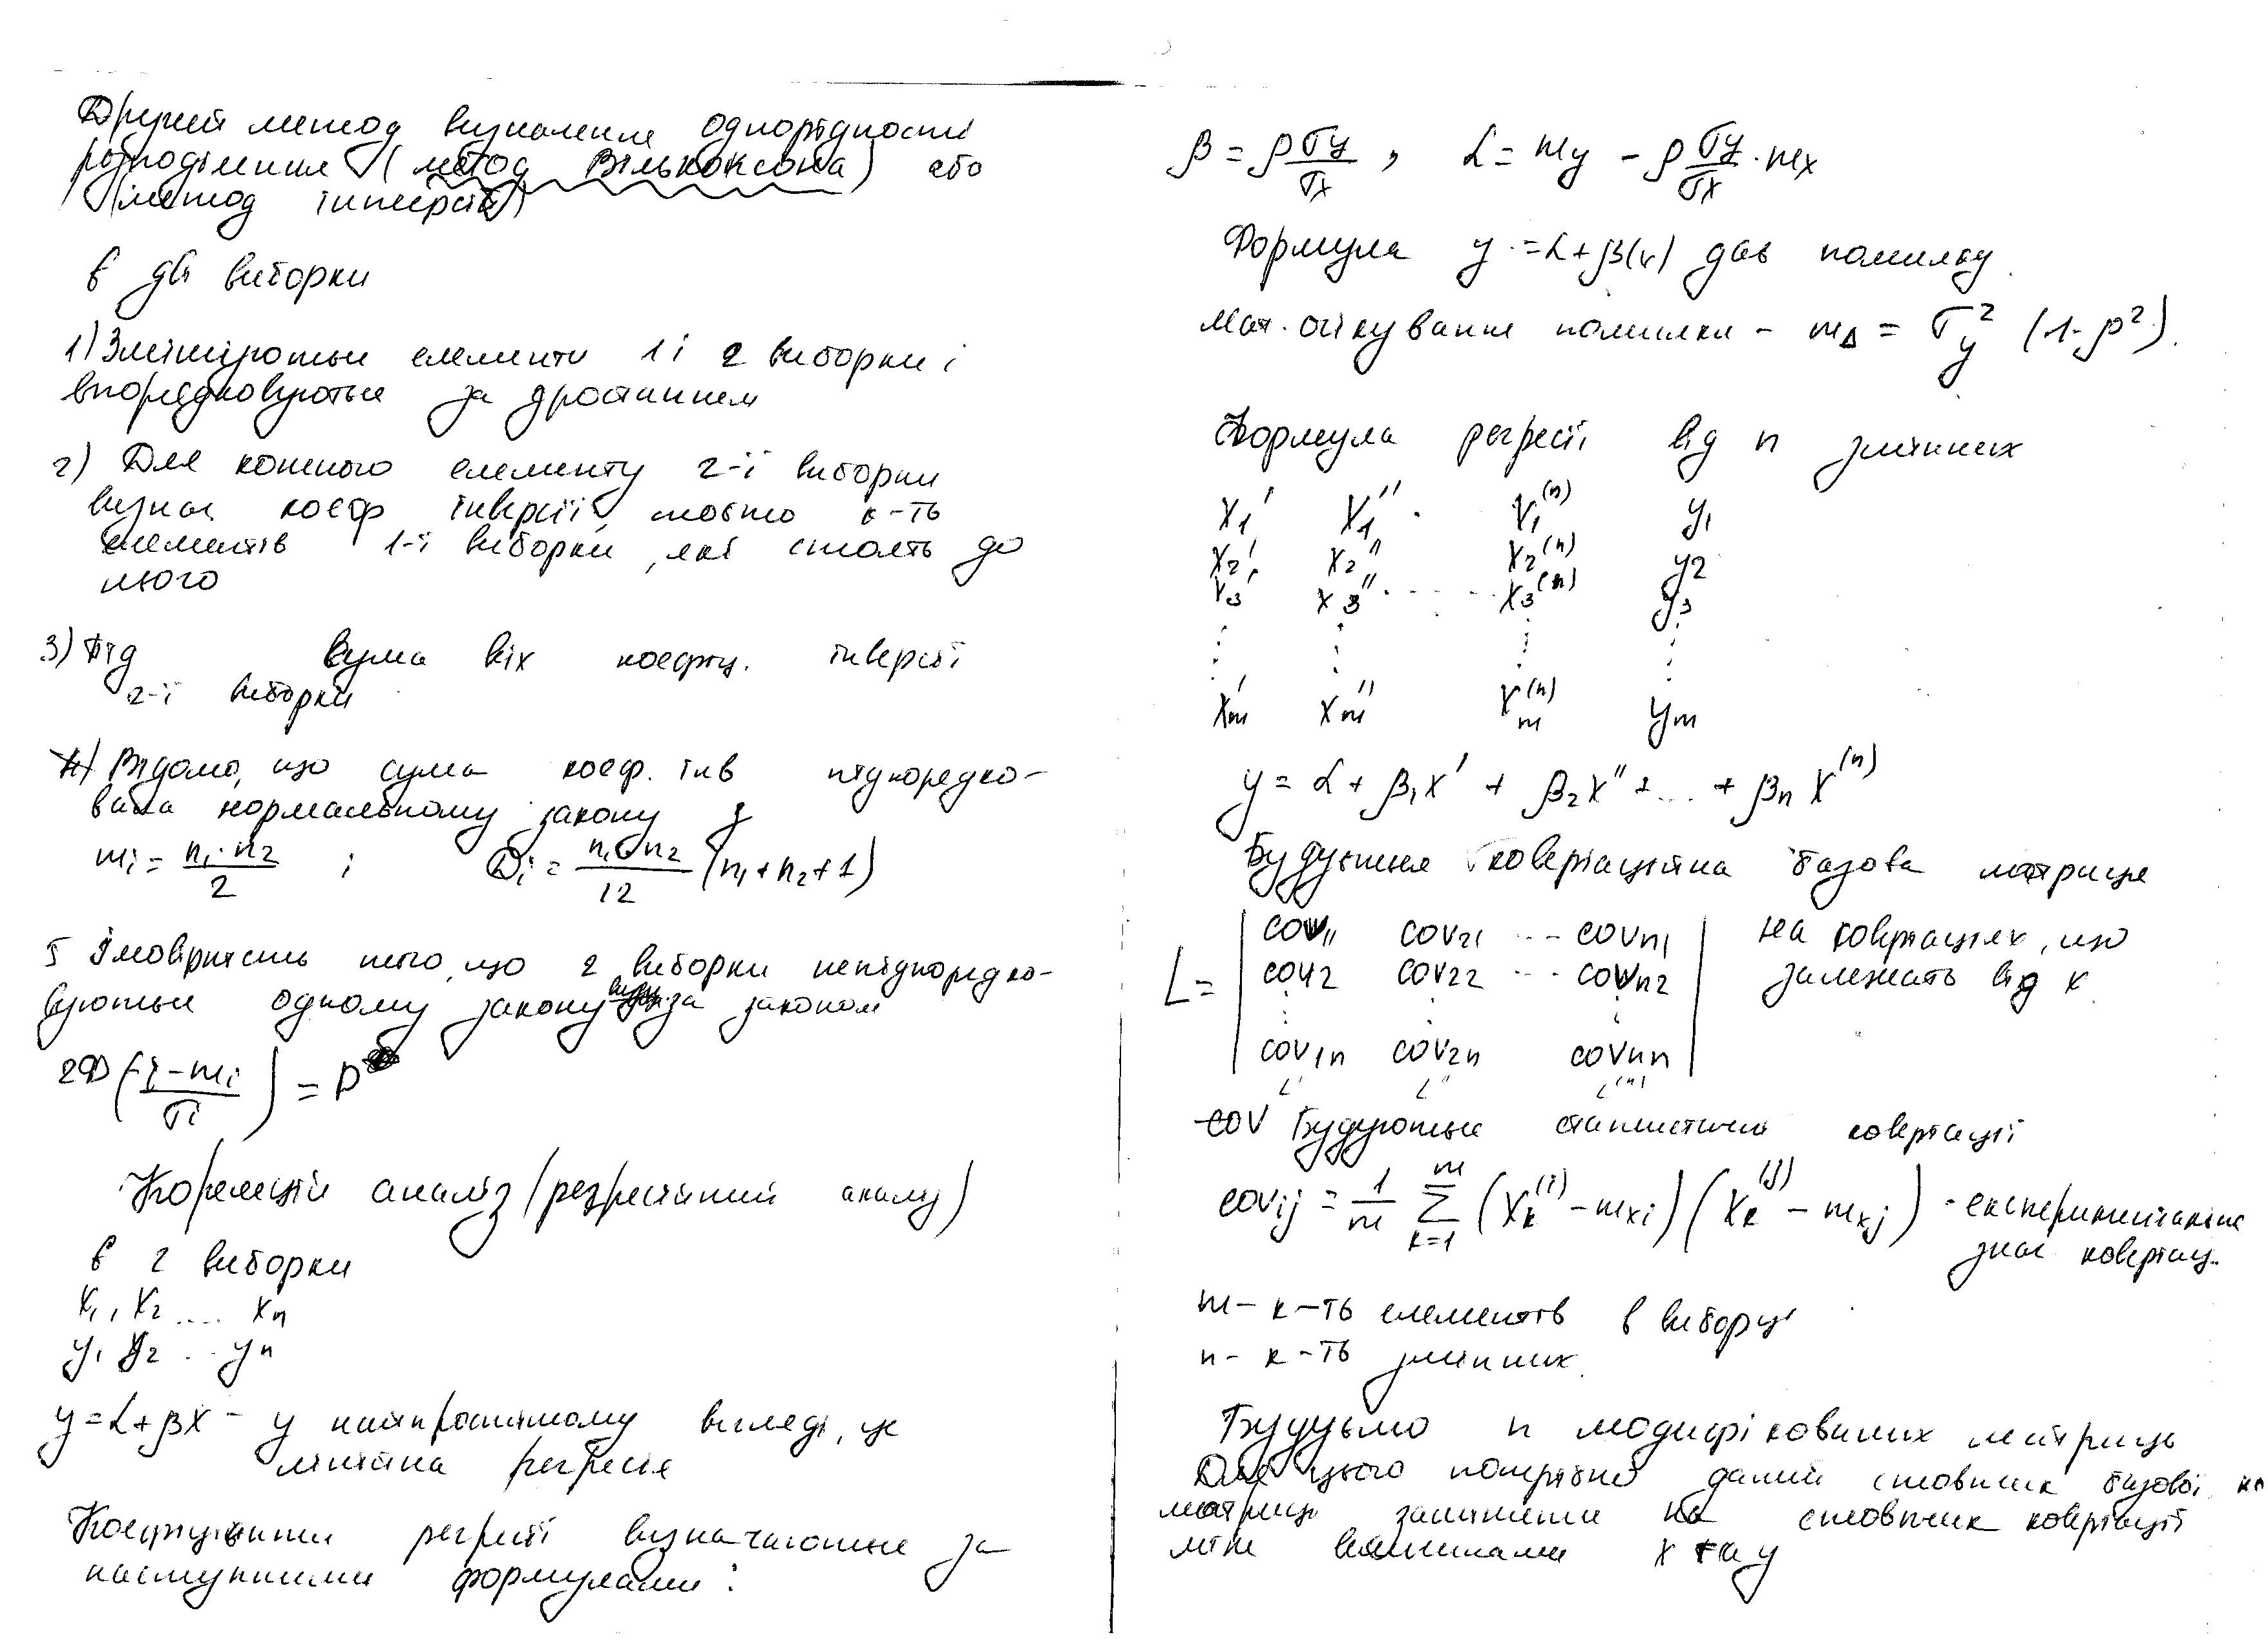 Другий метод визначення однорідності
розподілення (метод Вількоксона) або
(метод інверсій)
Є дві виборки
1) Змішуються елементи 1 і 2 виборки і
впорядковуються за зростанням
2) Для кожного елементу 2-ї виборки
визнач коеф інверсії, тобто к-ть
елементів 1-ї виборки, які стоять до
нього
3) Під сума всіх коефіц. інверсії
2-ї виборки
4) Відомо, що сума коеф. інв підпорядко-
вана нормальному закону з
mi = n₁·n₂/2 ; Di = n₁·n₂/12 (n₁+n₂+1)
5 Ймовірність того, що 2 виборки непідпорядко-
вуються одному закону за законом
2Ф((i-mi)/σi) = P
Кореляцій аналіз (регресійний аналіз)
Є 2 виборки
x₁, x₂ .... xn
y₁ y₂ .. yn
y=α+βx - у найпростішому вигляді, це
лінійна регресія
Коефіцієнти регресії визначаються за
наступними формулами:
β = ρ σy/σx , α = my - ρ σy/σx · mx
Формула y = α+β(x) дає помилку.
Мат. очікування помилки - mΔ = σy² (1-ρ²).
Формула регресії від n змінних
x₁' x₁'' . x₁⁽ⁿ⁾ y₁
x₂' x₂'' x₂⁽ⁿ⁾ y₂
x₃' x₃'' ...... x₃⁽ⁿ⁾ y₃
⋮ ⋮ ⋮ ⋮
xm' xm'' xm⁽ⁿ⁾ ym
y = α + β₁x' + β₂x'' + ... + βn x⁽ⁿ⁾
Будується коваріаційна базова матриця
L = | cov₁₁ cov₂₁ ... covn₁ | на коваріаціях, що
cov₁₂ cov₂₂ ... covn₂ залежать від x
⋮ ⋮ ⋮
cov₁n cov₂n covnn
L' L'' L⁽ⁿ⁾
Будуються статистичні коваріації
covij = 1/m Σ(k=1..m) (xk⁽ⁱ⁾ - mxi)(xk⁽ʲ⁾ - mxj) - експериментальне
знач коваріац.
m - к-ть елементів в виборці
n - к-ть змінних.
Будуємо n модифікованих матриць
Для цього потрібно даний стовпчик базової
матриці замінити на стовпчик коваріації
між величинами x та y